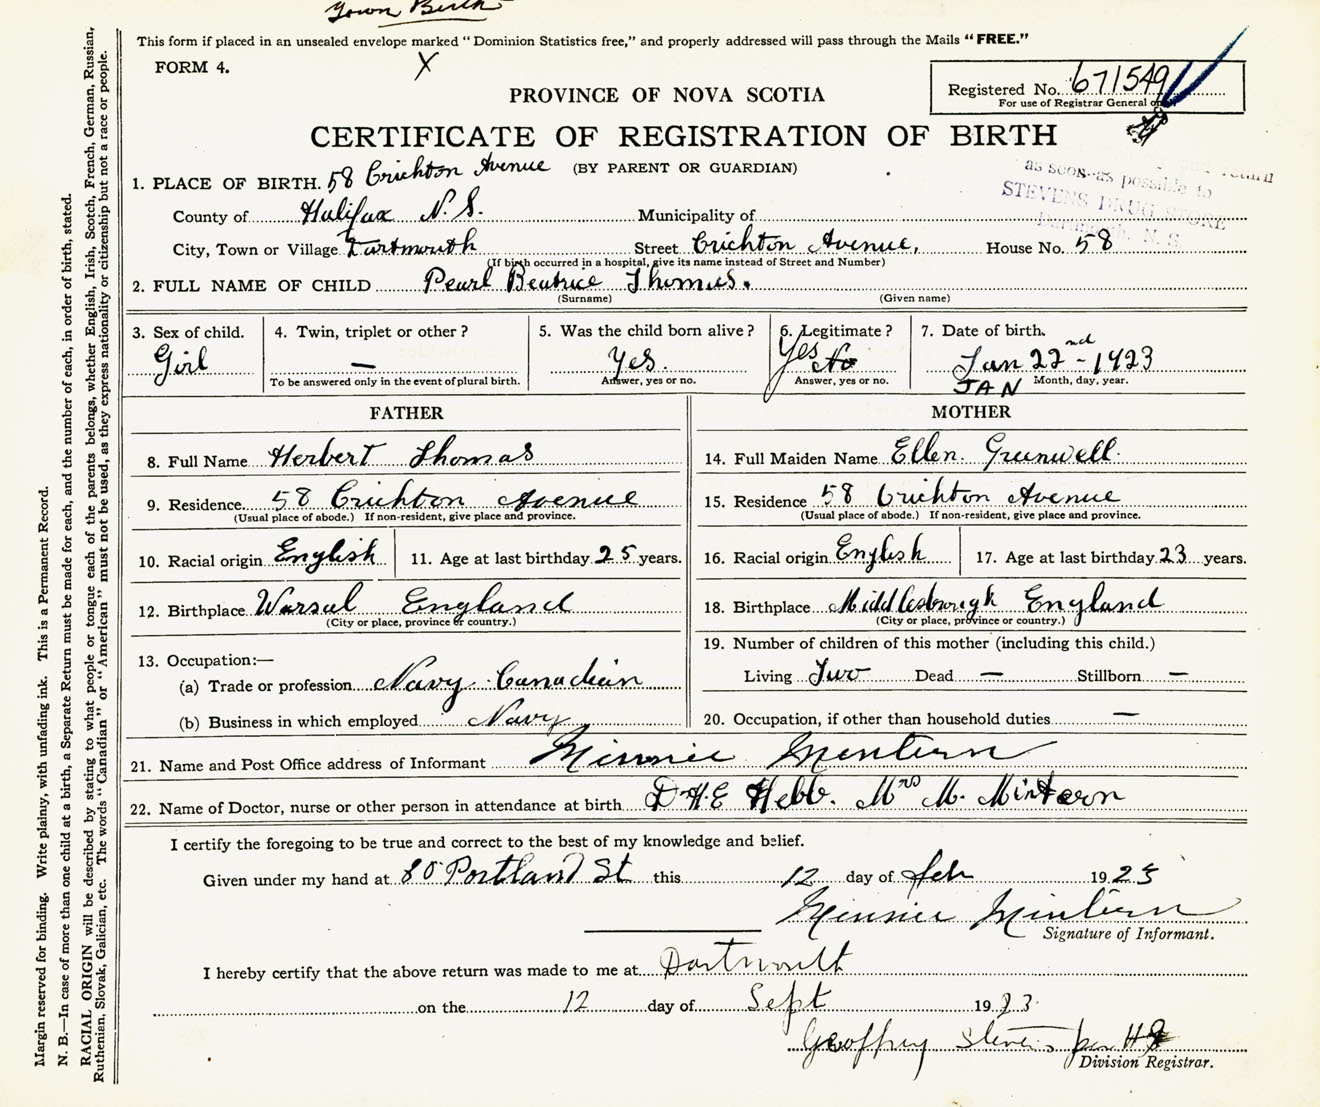 Town Birth
This form if placed in an unsealed envelope marked "Dominion Statistics free," and properly addressed will pass through the Mails "FREE."
FORM 4. X
Registered No. 671549
For use of Registrar General
PROVINCE OF NOVA SCOTIA
CERTIFICATE OF REGISTRATION OF BIRTH
(BY PARENT OR GUARDIAN)
as soon as possible to
STEVENS DRUG STORE
N. S.
1. PLACE OF BIRTH. 58 Crichton Avenue
County of Halifax N.S. Municipality of
City, Town or Village Dartmouth Street Crichton Avenue, House No. 58
(If birth occurred in a hospital, give its name instead of Street and Number)
2. FULL NAME OF CHILD Pearl Beatrice Thomas.
(Surname) (Given name)
3. Sex of child. Girl
4. Twin, triplet or other? —
To be answered only in the event of plural birth.
5. Was the child born alive? Yes.
Answer, yes or no.
6. Legitimate? Yes No
Answer, yes or no.
7. Date of birth. Jan 22nd - 1923
JAN Month, day, year.
FATHER
8. Full Name Herbert Thomas
9. Residence. 58 Crichton Avenue
(Usual place of abode.) If non-resident, give place and province.
10. Racial origin English 11. Age at last birthday 25 years.
12. Birthplace Warsal England
(City or place, province or country.)
13. Occupation:—
(a) Trade or profession Navy Canadian
(b) Business in which employed Navy
MOTHER
14. Full Maiden Name Ellen Greenwell
15. Residence 58 Crichton Avenue
(Usual place of abode.) If non-resident, give place and province.
16. Racial origin English 17. Age at last birthday 23 years.
18. Birthplace Middlesbrough England
(City or place, province or country.)
19. Number of children of this mother (including this child.)
Living Two Dead — Stillborn —
20. Occupation, if other than household duties —
21. Name and Post Office address of Informant Minnie Mintern
22. Name of Doctor, nurse or other person in attendance at birth Dr H.E Hebb. Mrs M. Mintern
I certify the foregoing to be true and correct to the best of my knowledge and belief.
Given under my hand at 80 Portland St this 12 day of feb 19 23
Minnie Mintern
Signature of Informant.
I hereby certify that the above return was made to me at Dartmouth
on the 12 day of Sept 19 23
Geoffrey Stevens per
Division Registrar.
Margin reserved for binding. Write plainy, with unfading ink. This is a Permanent Record.
N. B.—In case of more than one child at a birth, a Separate Return must be made for each, and the number of each, in order of birth, stated.
RACIAL ORIGIN will be described by stating to what people or tongue each of the parents belongs, whether English, Irish, Scotch, French, German, Russian,
Ruthenian, Slovak, Galician, etc. The words "Canadian" or "American" must not be used, as they express nationality or citizenship but not a race or people.